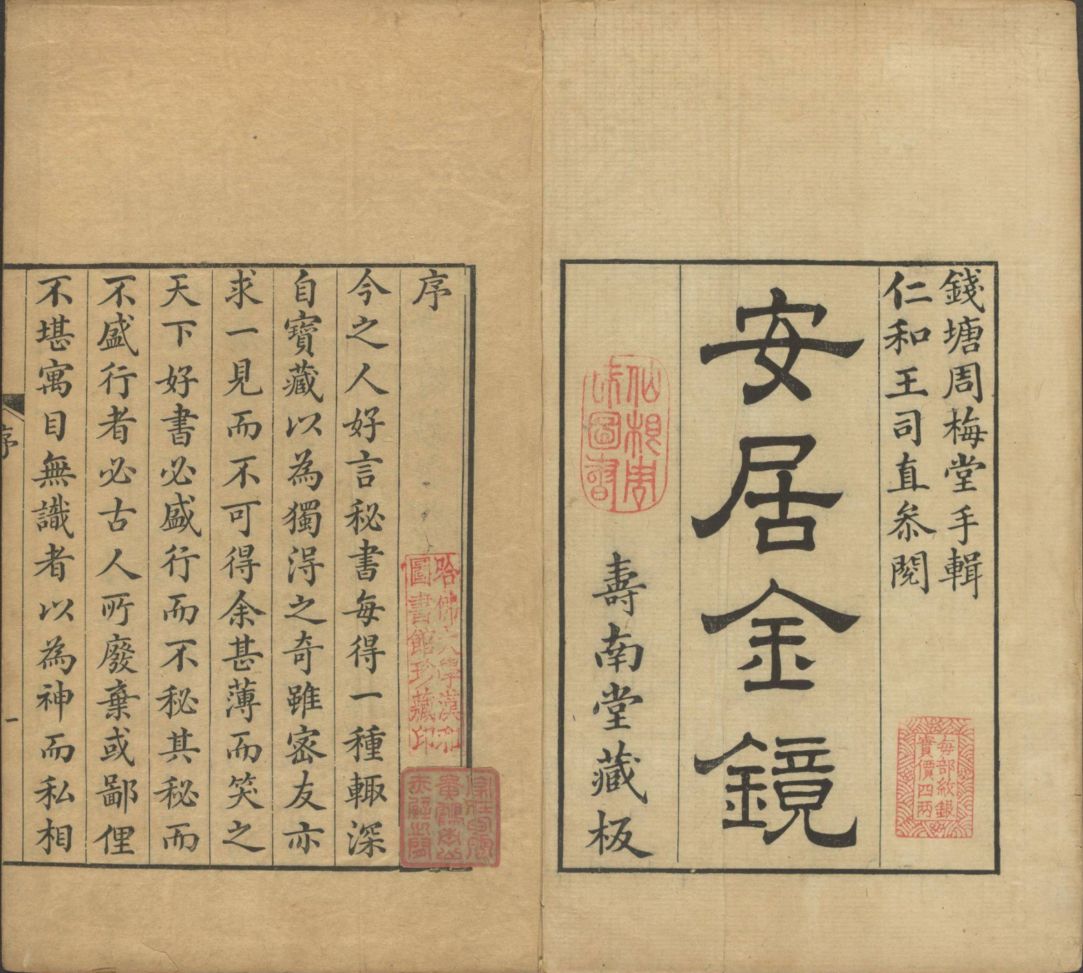 錢塘周梅堂手輯
仁和王司直叅閱
安居金鏡
壽南堂藏板
每部紋銀
實價四兩
序
今之人好言秘書每得一種輙深
自寶藏以為獨淂之奇雖宻友亦
求一見而不可得余甚薄而笑之
天下好書必盛行而不秘其秘而
不盛行者必古人所廢棄或鄙俚
不堪寓目無識者以為神而私相
哈佛大學漢和
圖書館珍藏印
序
一